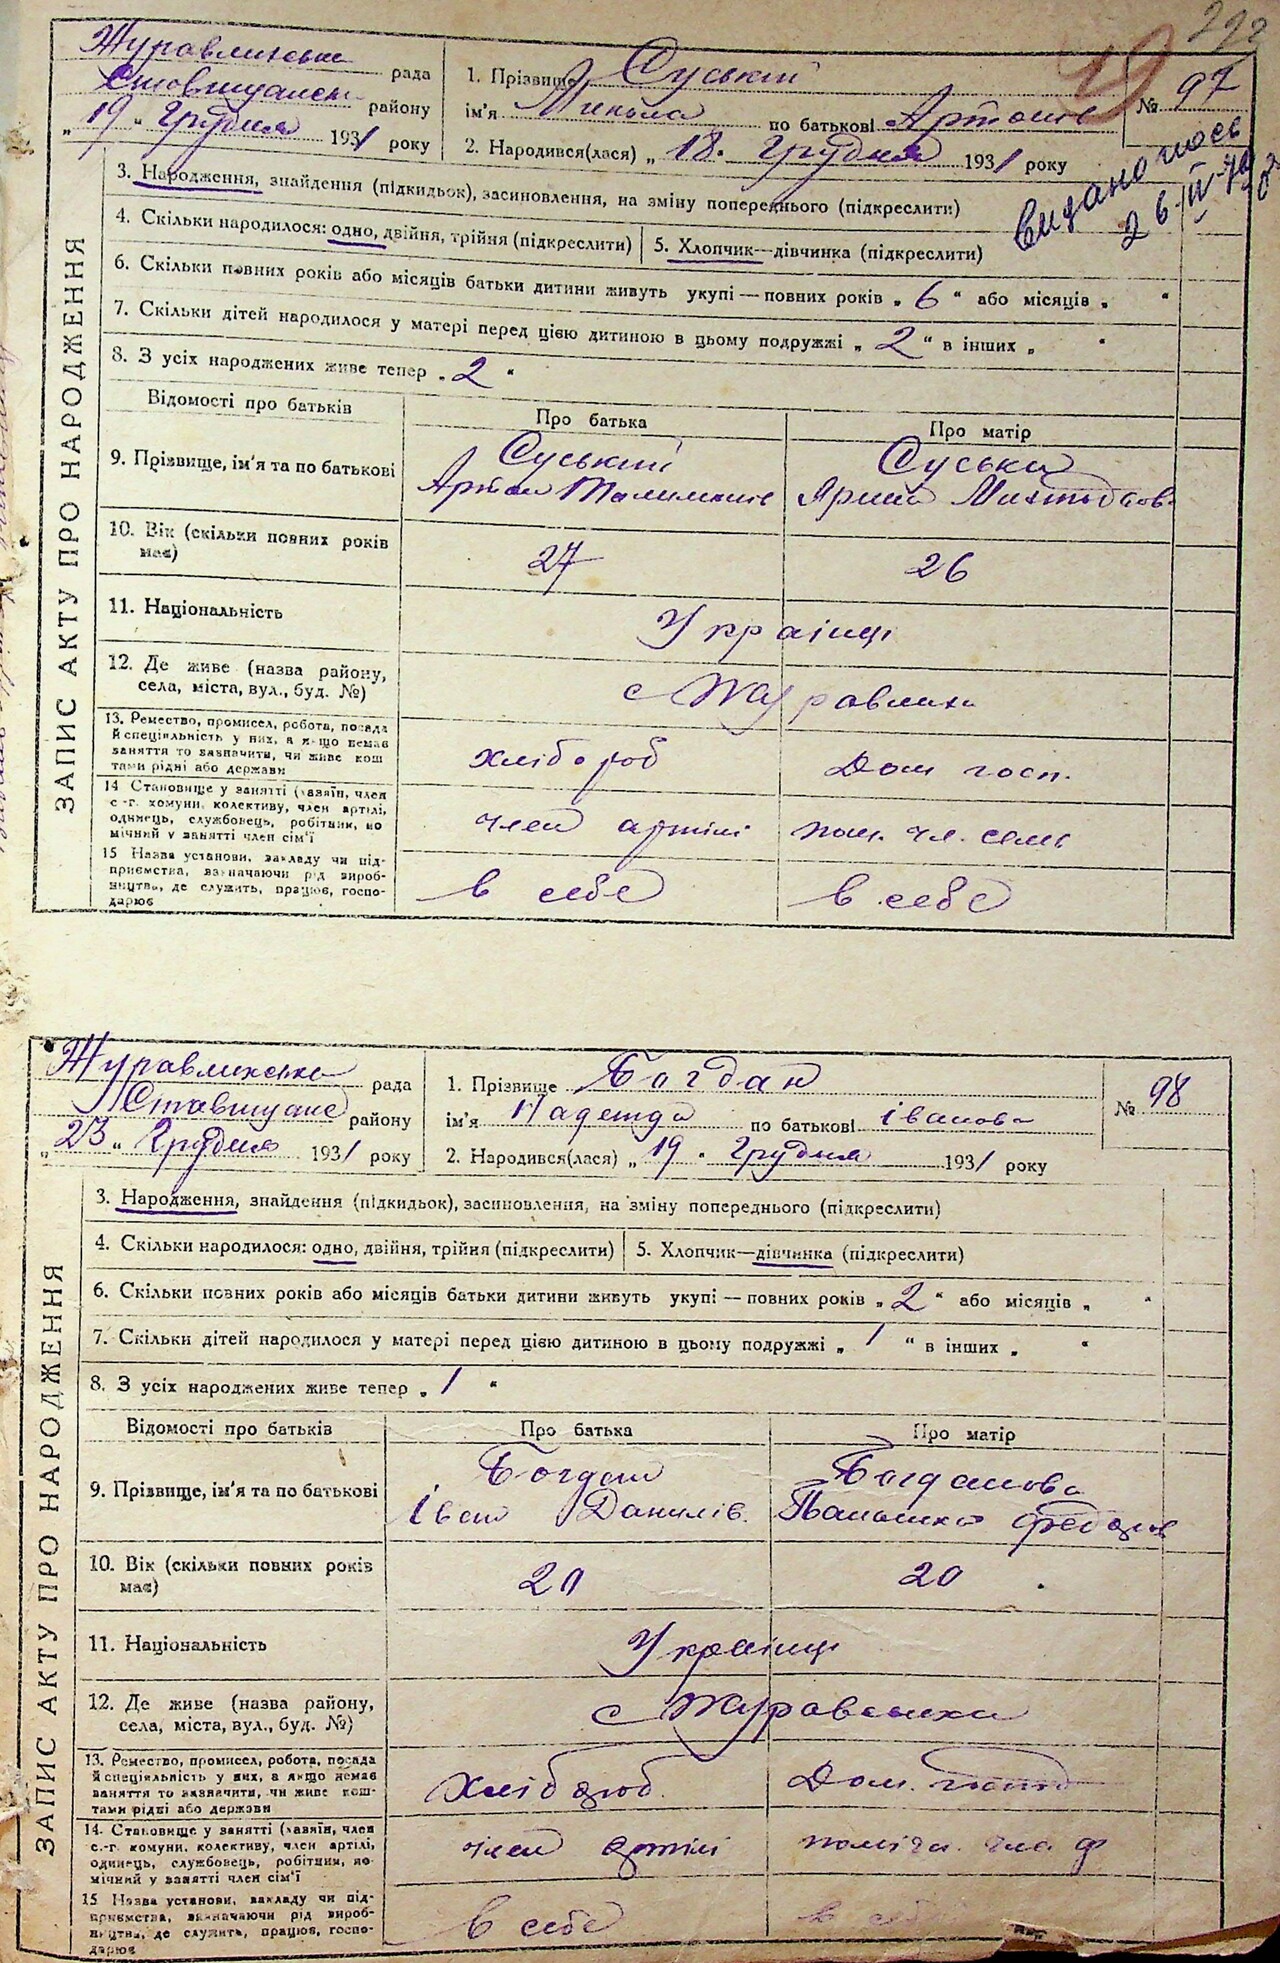 Журавлинська рада
Ставищанськ району
„19„ Грудня 1931 року
1. Прізвище Суський
ім'я Микола по батькові Артомів
2. Народився(лася) „18. Грудня 1931 року
№ 97
Видано
26/IV-
3. Народження, знайдення (підкидьок), засиновлення, на зміну попереднього (підкреслити)
4. Скільки народилося: одно, двійня, трійня (підкреслити)
5. Хлопчик—дівчинка (підкреслити)
6. Скільки повних років або місяців батьки дитини живуть укупі — повних років „6“ або місяців „ “
7. Скільки дітей народилося у матері перед цією дитиною в цьому подружжі „2“ в інших „ “
8. З усіх народжених живе тепер „2“
ЗАПИС АКТУ ПРО НАРОДЖЕННЯ
Відомості про батьків
Про батька
Про матір
9. Прізвище, ім'я та по батькові
Суський
Артом
Суська
Ярина
10. Вік (скільки повних років має)
27
26
11. Національність
Українці
12. Де живе (назва району,
села, міста, вул., буд. №)
с Журавлиха
13. Ремество, промисел, робота, посада
й спеціяльність у них, а якщо немає
заняття то зазначити, чи живе кош
тами рідні або держави
хлібороб
Дом госп.
14 Становище у занятті (хазяїн, член
с.-г. комуни, колективу, член артілі,
одинець, службовець, робітник, по
мічний у занятті член сім'ї
член артілі
пом. чл. семі
15 Назва установи, закладу чи під-
приємства, зазначаючи рід вироб-
ництва, де служить, працює, госпо-
дарює
в себе
в себе
Журавлинська рада
Ставищанс району
„23„ Грудня 1931 року
1. Прізвище Богдан
ім'я Надежда по батькові Іванова
2. Народився(лася) „19. Грудня 1931 року
№ 98
3. Народження, знайдення (підкидьок), засиновлення, на зміну попереднього (підкреслити)
4. Скільки народилося: одно, двійня, трійня (підкреслити)
5. Хлопчик—дівчинка (підкреслити)
6. Скільки повних років або місяців батьки дитини живуть укупі — повних років „2“ або місяців „ “
7. Скільки дітей народилося у матері перед цією дитиною в цьому подружжі „1“ в інших „ “
8. З усіх народжених живе тепер „1“
ЗАПИС АКТУ ПРО НАРОДЖЕННЯ
Відомості про батьків
Про батька
Про матір
9. Прізвище, ім'я та по батькові
Богдан
Іван Данилів.
Богданова
Палашка Федорів
10. Вік (скільки повних років
має)
20
20
11. Національність
Українці
12. Де живе (назва району,
села, міста, вул., буд. №)
с Журавлиха
13. Ремество, промисел, робота, посада
й спеціяльність у них, а якщо немає
заняття то зазначити, чи живе кош-
тами рідні або держави
хлібороб.
Дом. господ
14. Становище у занятті (хазяїн, член
с.-г. комуни, колективу, член артілі,
одинець, службовець, робітник, по-
мічний у занятті член сім'ї
член артілі
поміч. член ф
15 Назва установи, закладу чи під-
приємства, зазначаючи рід вироб-
ництва, де служить, працює, госпо-
дарює
в себе
в себе